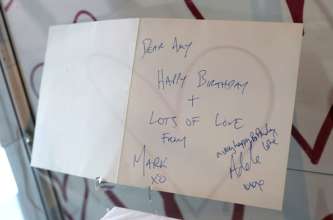 DEAR AMY
HAPPY BIRTHDAY
+
LOTS OF LOVE
FROM
MARK
XO
happy birthday
love
Adele